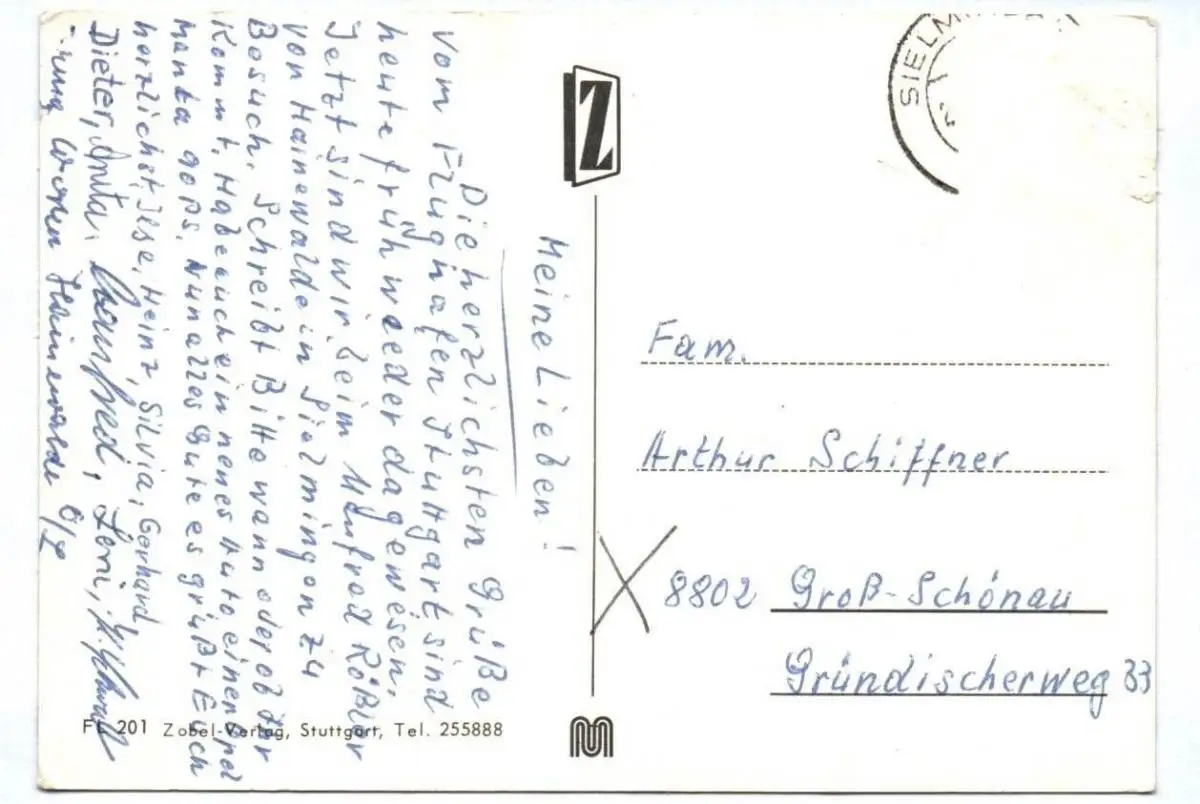 Meine Lieben!
Die herzlichsten Grüße
vom Flughafen Stuttgart sind
heute früh wieder dagewesen.
Jetzt sind wir beim Manfred Rößler
von Hainewalde in Sielmingen zu
Besuch. Schreibt Bitte wann oder ob Ihr
Kommt. Habe auch ein neues Auto einen Opel
Manta
Nun alles Gute es grüßt Euch
herzlichst, Ilse, Heinz, Silvia, Gerhard
Dieter, Anita, Manfred, Leni,
Hainewalde
FL 201 Zobel-Verlag, Stuttgart, Tel. 255888
Z
SIELMINGEN
Fam.
Arthur Schiffner
8802 Groß-Schönau
Gründischerweg 33